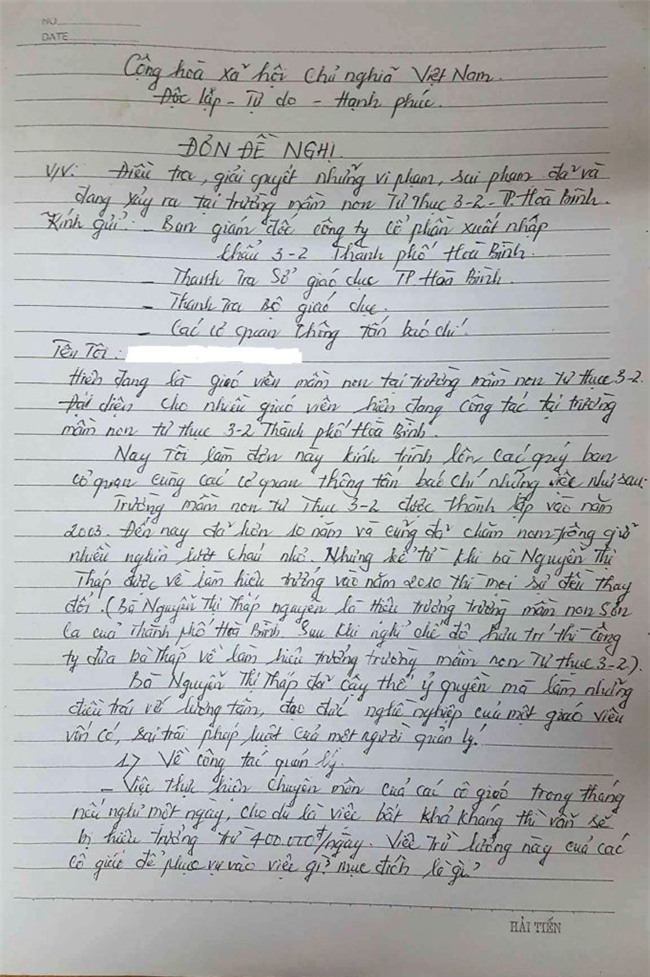 NO
DATE
Cộng hoà xã hội chủ nghĩa Việt Nam.
Độc lập - Tự do - Hạnh phúc.
ĐƠN ĐỀ NGHỊ.
V/v: Điều tra, giải quyết những vi phạm, sai phạm đã và
đang xảy ra tại trường mầm non Tư Thục 3-2 - TP. Hoà Bình.
Kính gửi: - Ban giám đốc công ty cổ phần xuất nhập
khẩu 3-2 Thành phố Hoà Bình.
- Thanh Tra Sở giáo dục TP. Hoà Bình.
- Thanh tra Bộ giáo dục.
- Các cơ quan thông tấn báo chí.
Tên Tôi:
Hiện đang là giáo viên mầm non tại trường mầm non tư thục 3-2.
Đại diện cho nhiều giáo viên hiện đang công tác tại trường
mầm non tư thục 3-2 Thành phố Hoà Bình.
Nay tôi làm đơn này kính trình lên các quý ban
cơ quan cùng các cơ quan thông tấn báo chí những việc như sau:
Trường mầm non tư thục 3-2 được thành lập vào năm
2003. Đến nay đã hơn 10 năm và cũng đã chăm nom trông giữ
nhiều nghìn lượt cháu nhỏ. Nhưng kể từ khi bà Nguyễn Thị
Tháp được về làm hiệu trưởng vào năm 2010 thì mọi sự đều thay
đổi. (Bà Nguyễn Thị Tháp nguyên là hiệu trưởng trường mầm non Sơn
ca của Thành phố Hoà Bình. Sau khi nghỉ chế độ hưu trí thì công
ty đưa bà Tháp về làm hiệu trưởng trường mầm non Tư thục 3-2).
Bà Nguyễn Thị Tháp đã cậy thế ỷ quyền mà làm những
điều trái với lương tâm, đạo đức nghề nghiệp của một giáo viên
vốn có, sai trái pháp luật của một người quản lý!
1) Về công tác quản lý.
- Việc thực hiện chuyên môn của các cô giáo trong tháng
nếu nghỉ một ngày, cho dù là việc bất khả kháng thì vẫn sẽ
bị hiệu trưởng trừ 400.000đ/ngày. Việc trừ lương này của các
cô giáo để phục vụ vào việc gì? mục đích là gì?
HẢI TIẾN